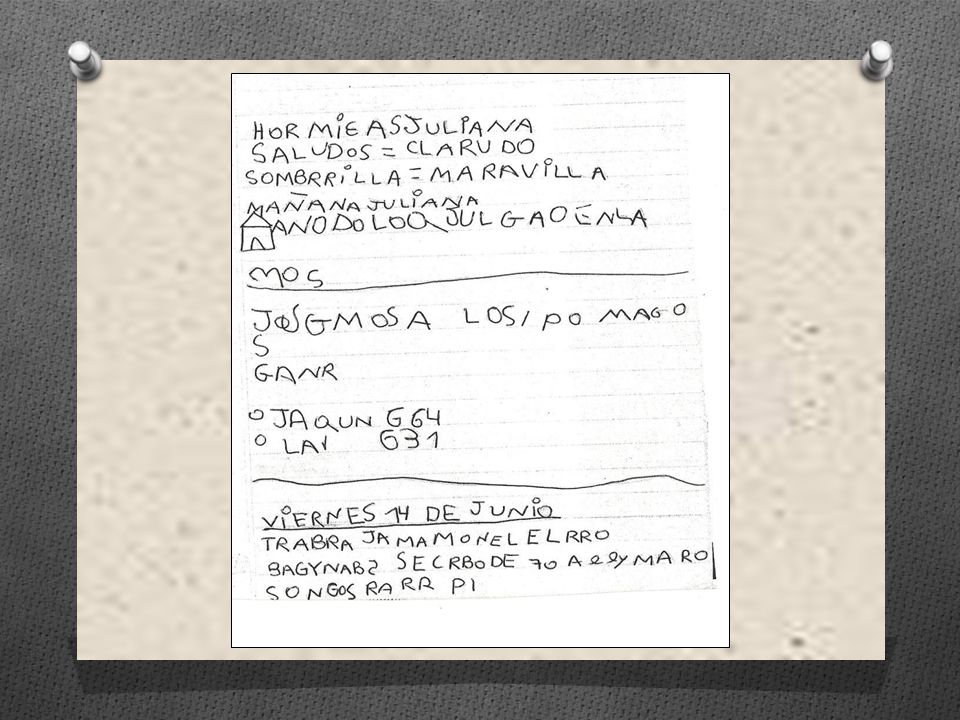 HORMIEASJULIANA
SALUDOS = CLARUDO
SOMBRRILLA = MARAVILLA
MAÑANAJULIANA
ANODOLOQ JULGAOENLA
MOS
GMOSA LOS, PO MAGO
S
GANR
O JAQUN 664
O LAI 631
VIERNES 14 DE JUNIO
TRABRA JAMAMONELELRRO
SECRBODE 70 A MARO
SONGOS RARR PI